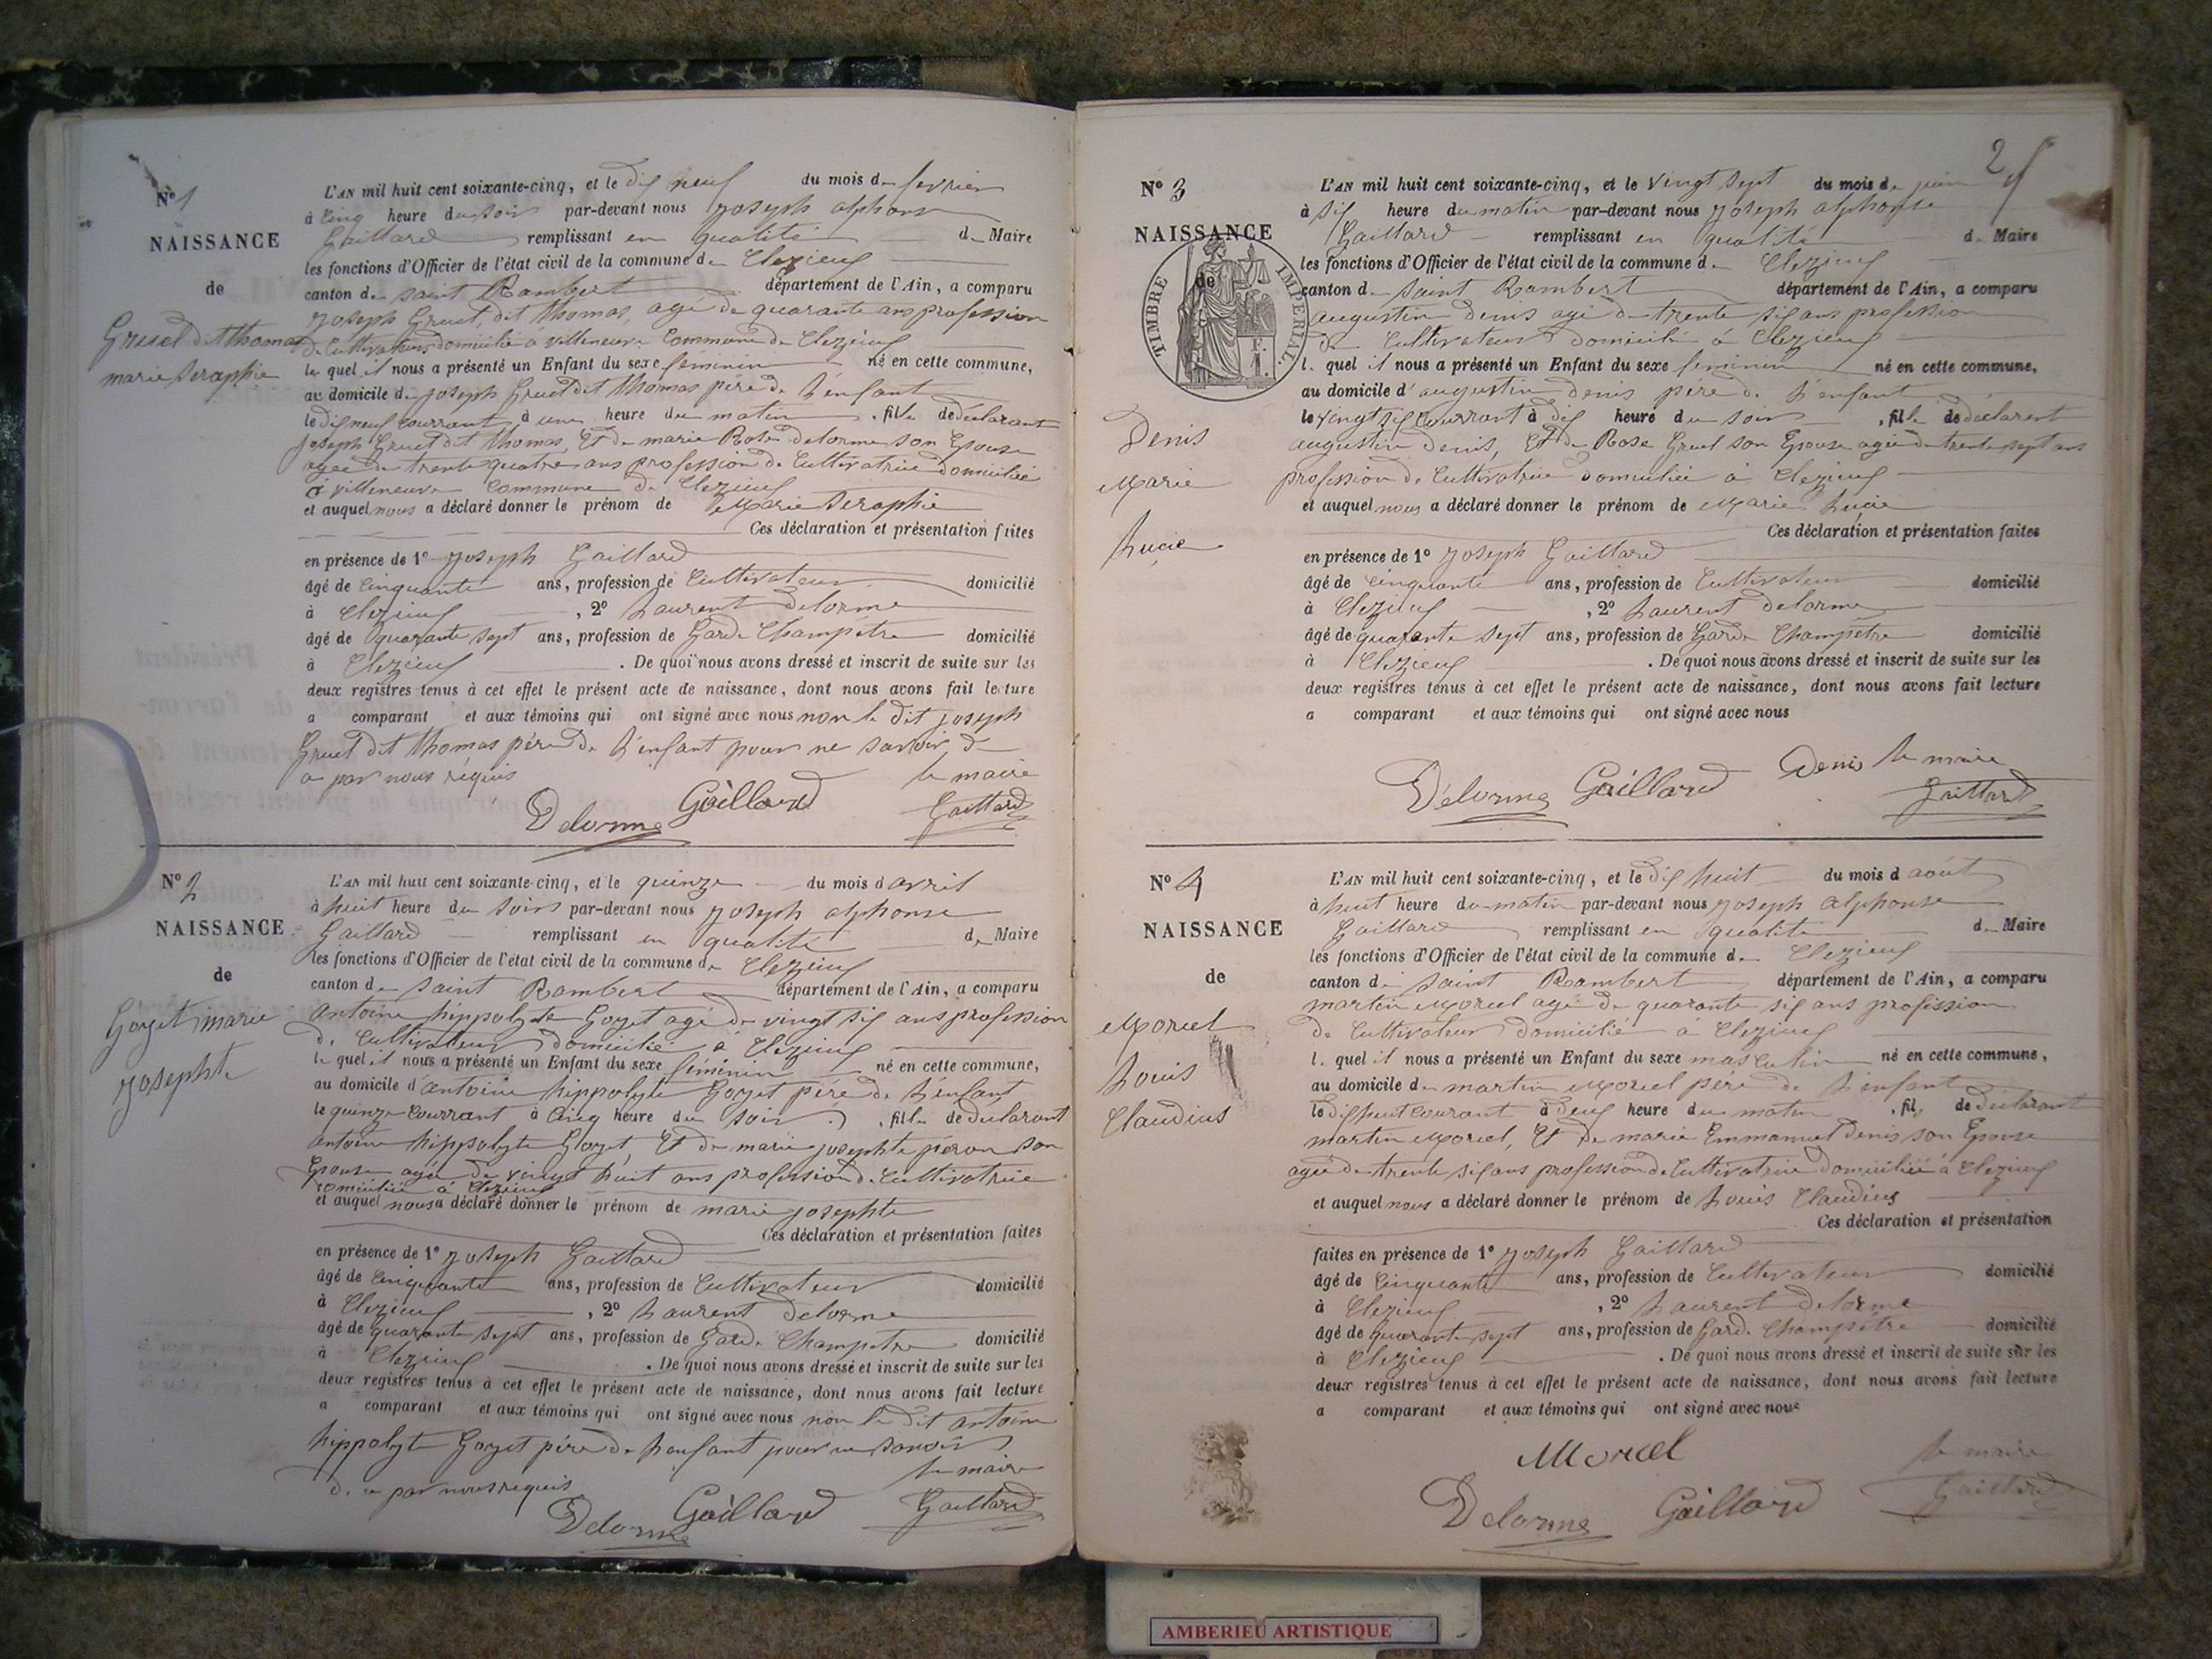 N° 1
NAISSANCE
de
Gruel dit thomas
marie Seraphie
L'AN mil huit cent soixante-cinq, et le dix neuf du mois de fevrier
à Cinq heure du soir par-devant nous joseph alphonse
Gaillard remplissant en qualité de Maire
les fonctions d'Officier de l'état civil de la commune de Clezieux
canton de saint Rambert département de l'Ain, a comparu
joseph Gruel, dit thomas, agé de quarante ans profession
de Cultivateur domicilié à villeneuve Commune de Clezieux
le quel il nous a présenté un Enfant du sexe féminin né en cette commune,
au domicile de joseph Gruel dit thomas père de l'enfant
le dix neuf Courrant à une heure du matin, fille de déclarant
joseph Gruel dit thomas, Et de marie Rose delorme son Epouse
agée de trente quatre ans profession de Cultivatrice domiciliée
à villeneuve Commune de Clezieux
et auquel nous a déclaré donner le prénom de Marie Seraphie
Ces déclaration et présentation faites
en présence de 1° joseph Gaillard
âgé de Cinquante ans, profession de Cultivateur domicilié
à Clezieux, 2° Laurent delorme
âgé de quarante sept ans, profession de Garde Champêtre domicilié
à Clezieux. De quoi nous avons dressé et inscrit de suite sur les
deux registres tenus à cet effet le présent acte de naissance, dont nous avons fait lecture
a comparant et aux témoins qui ont signé avec nous non le dit joseph
Gruel dit thomas père de l'enfant pour ne savoir de
ce par nous réquis
le maire
Delorme Gaillard Gaillard
N° 2
NAISSANCE
de
Goyet marie
josephte
L'AN mil huit cent soixante-cinq, et le quinze du mois d avril
à huit heure du soir par-devant nous joseph alphonse
Gaillard remplissant en qualité de Maire
les fonctions d'Officier de l'état civil de la commune de Clezieux
canton de saint Rambert département de l'Ain, a comparu
antoine hippolyte Goyet agé de vingt six ans profession
de Cultivateur domicilié à Clezieux
le quel il nous a présenté un Enfant du sexe féminin né en cette commune,
au domicile d antoine hippolyte Goyet père de l'enfant
le quinze Courrant à Cinq heure du soir, fille de déclarant
antoine hippolyte Goyet, Et de marie josephte péron son
Epouse agée de vingt huit ans profession de Cultivatrice
domiciliée à Clezieux
et auquel nous a déclaré donner le prénom de marie josephte
Ces déclaration et présentation faites
en présence de 1° joseph Gaillard
âgé de Cinquante ans, profession de Cultivateur domicilié
à Clezieux, 2° Laurent delorme
âgé de quarante sept ans, profession de Garde Champetre domicilié
à Clezieux. De quoi nous avons dressé et inscrit de suite sur les
deux registres tenus à cet effet le présent acte de naissance, dont nous avons fait lecture
a comparant et aux témoins qui ont signé avec nous non le dit antoine
hippolyte Goyet père de l'enfant pour ne savoir
de ce par nous requis
le maire
Delorme Gaillard Gaillard
2
N° 3
NAISSANCE
de
TIMBRE IMPERIAL
Denis
Marie
Lucie
L'AN mil huit cent soixante-cinq, et le vingt sept du mois de juin
à six heure du matin par-devant nous joseph alphonse
Gaillard remplissant en qualité de Maire
les fonctions d'Officier de l'état civil de la commune d. Clezieux
canton d. saint Rambert département de l'Ain, a comparu
augustin denis agé de trente six ans profession
de Cultivateur domicilié à Clezieux
l. quel il nous a présenté un Enfant du sexe feminin né en cette commune,
au domicile d' augustin denis père de l'enfant
le vingt six Courrant à dix heure du soir, fille de déclarent
augustin denis, Et de Rose Gruel son Epouse agée de trente sept ans
profession de Cultivatrice domiciliée à Clezieux
et auquel nous a déclaré donner le prénom de Marie Lucie
Ces déclaration et présentation faites
en présence de 1° joseph Gaillard
âgé de Cinquante ans, profession de Cultivateur domicilié
à Clezieux, 2° Laurent delorme
âgé de quarante sept ans, profession de Garde Champêtre domicilié
à Clezieux. De quoi nous avons dressé et inscrit de suite sur les
deux registres tenus à cet effet le présent acte de naissance, dont nous avons fait lecture
a comparant et aux témoins qui ont signé avec nous
Delorme Gaillard Denis le maire
Gaillard
N° 4
NAISSANCE
de
Morel
Louis
Claudius
L'AN mil huit cent soixante-cinq, et le dix huit du mois d août
à huit heure du matin par-devant nous joseph alphonse
Gaillard remplissant en qualité d. Maire
les fonctions d'Officier de l'état civil de la commune d. Clezieux
canton d. saint Rambert département de l'Ain, a comparu
martin Morel agé de quarante six ans profession
de Cultivateur domicilié à Clezieux
l. quel il nous a présenté un Enfant du sexe masculin né en cette commune,
au domicile de martin Morel père de l'enfant
le dix huit Courant à deux heure du matin, fils de déclarant
martin Morel, Et de marie Emmanuel denis son Epouse
agée de trente six ans profession de Cultivatrice domiciliée à Clezieux
et auquel nous a déclaré donner le prénom de Louis Claudius
Ces déclaration et présentation
faites en présence de 1° joseph Gaillard
âgé de Cinquante ans, profession de Cultivateur domicilié
à Clezieux, 2° Laurent delorme
âgé de quarante sept ans, profession de Garde Champêtre domicilié
à Clezieux. De quoi nous avons dressé et inscrit de suite sur les
deux registres tenus à cet effet le présent acte de naissance, dont nous avons fait lecture
a comparant et aux témoins qui ont signé avec nous
Morel le maire
Delorme Gaillard Gaillard
AMBERIEU ARTISTIQUE